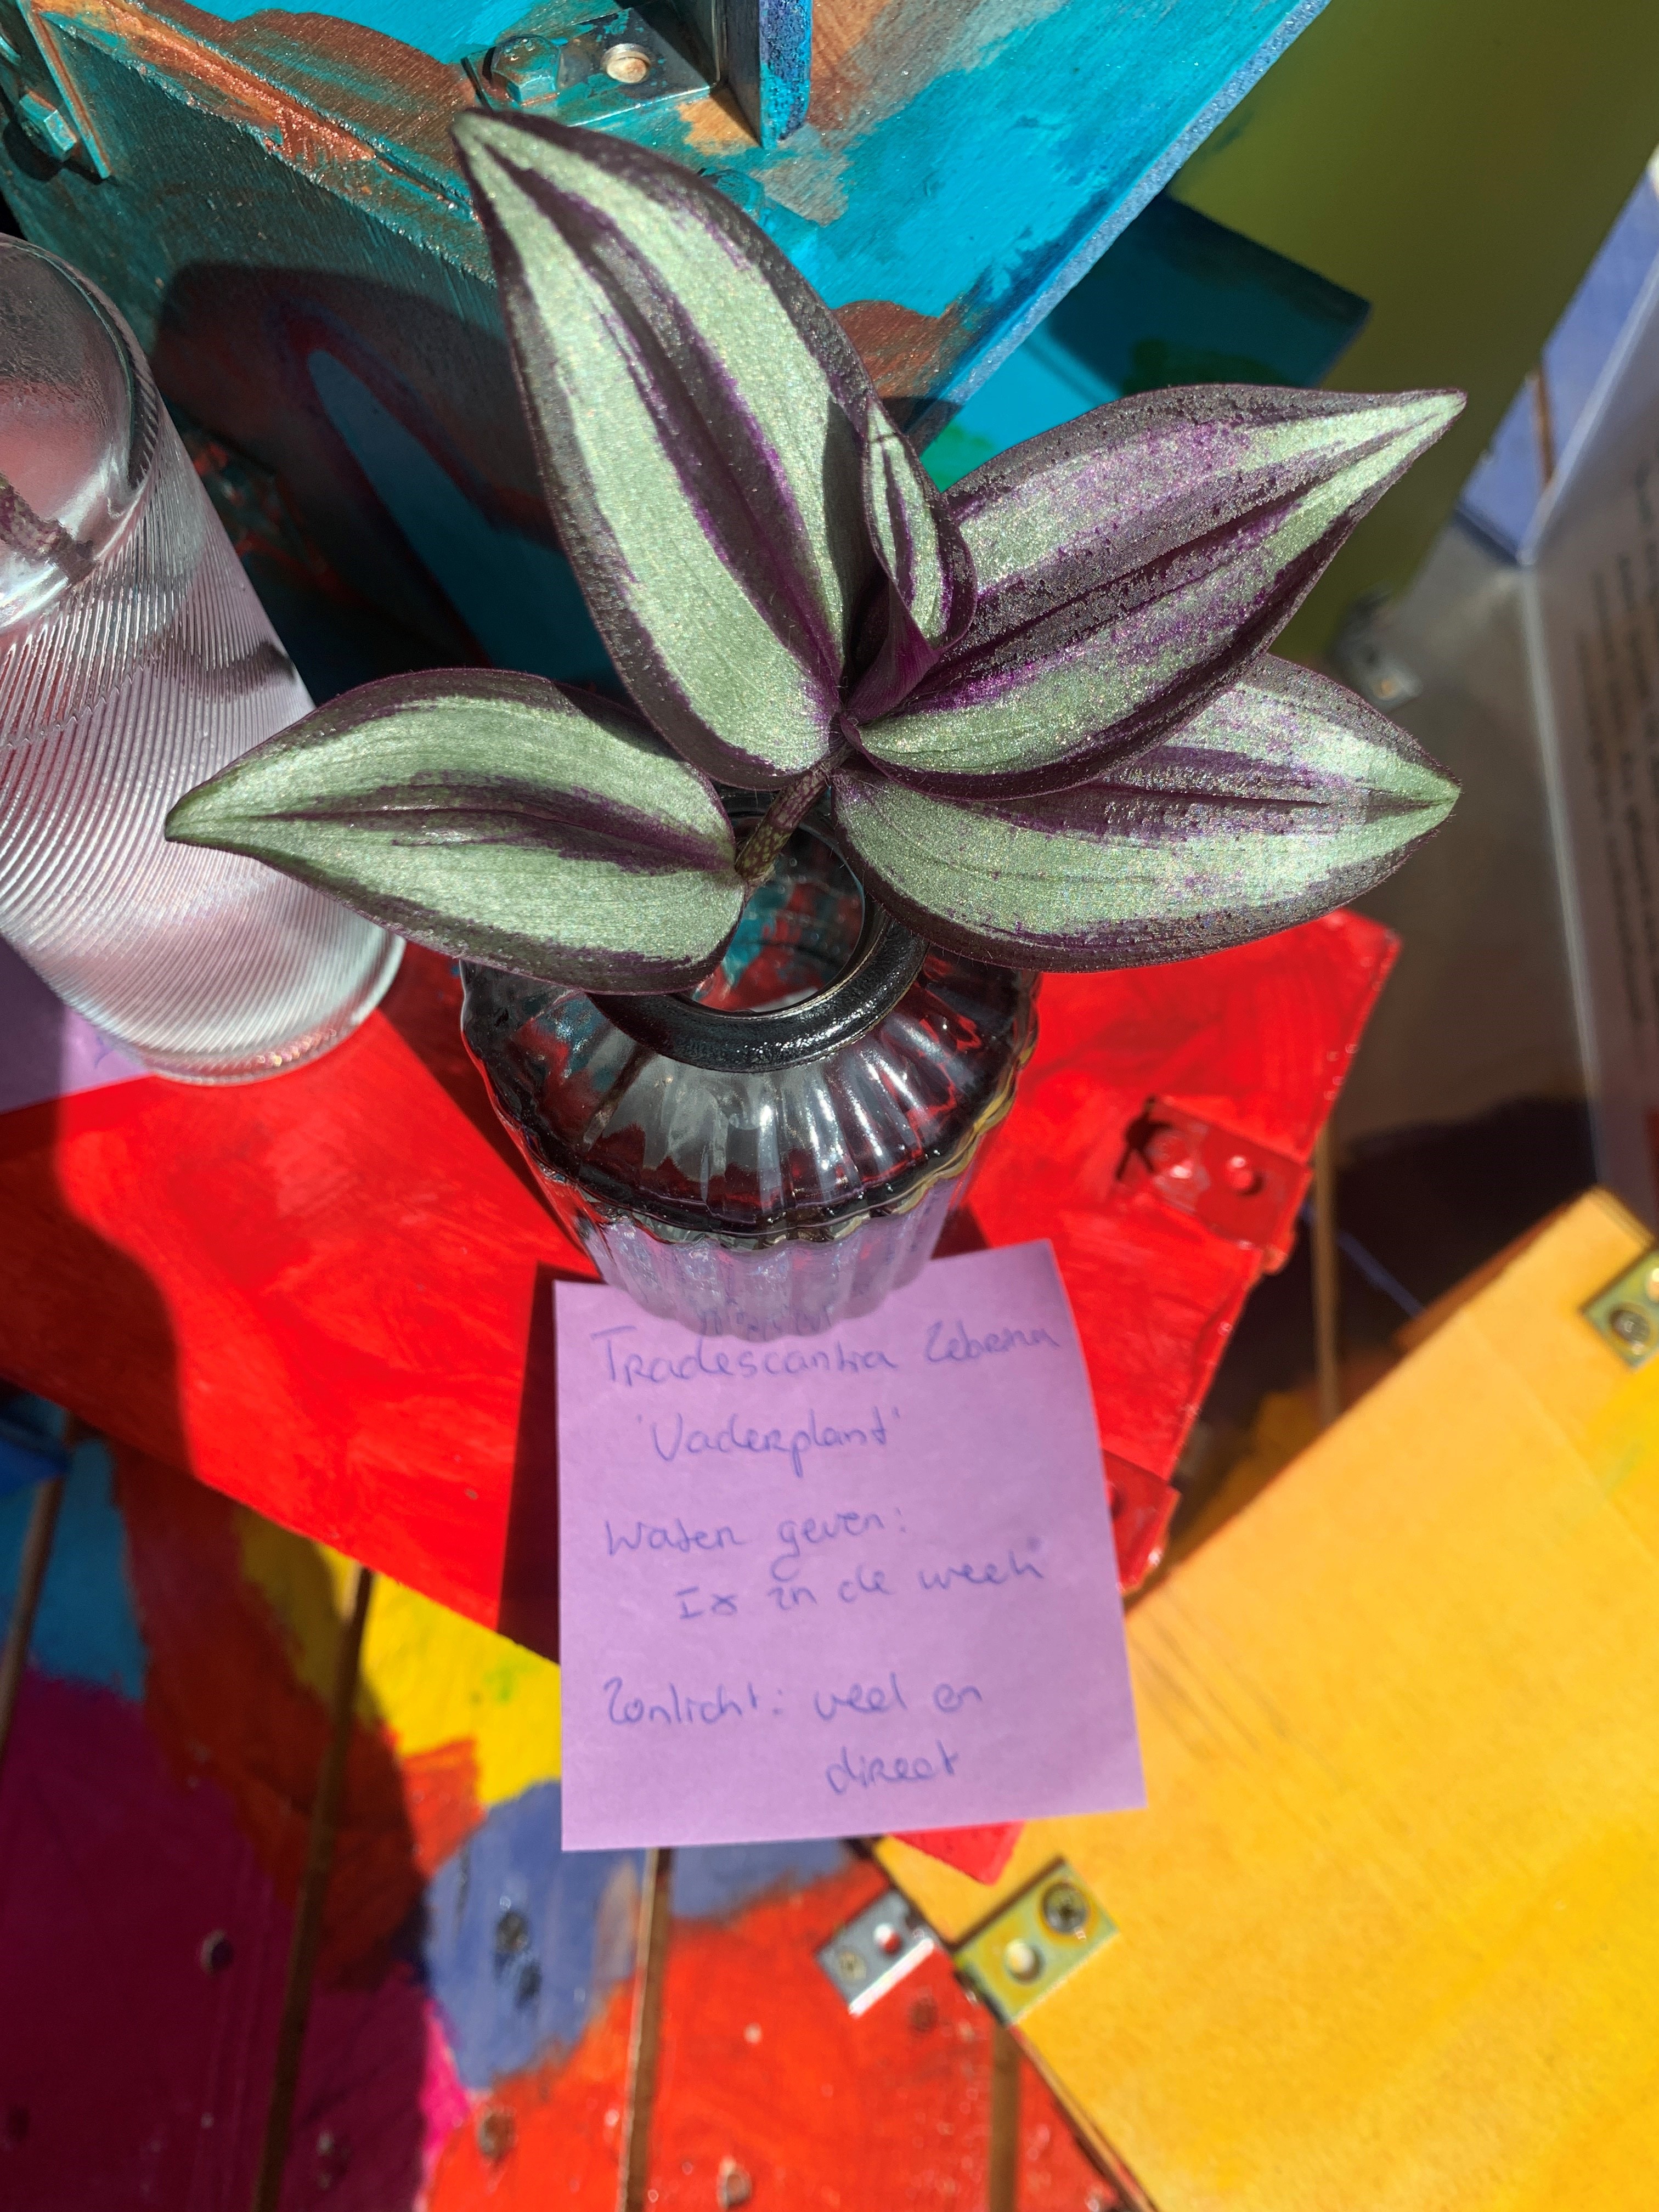 Tradescantia Zebrina
'Vaderplant'
Water geven:
1x in de week
Zonlicht: veel en
direct